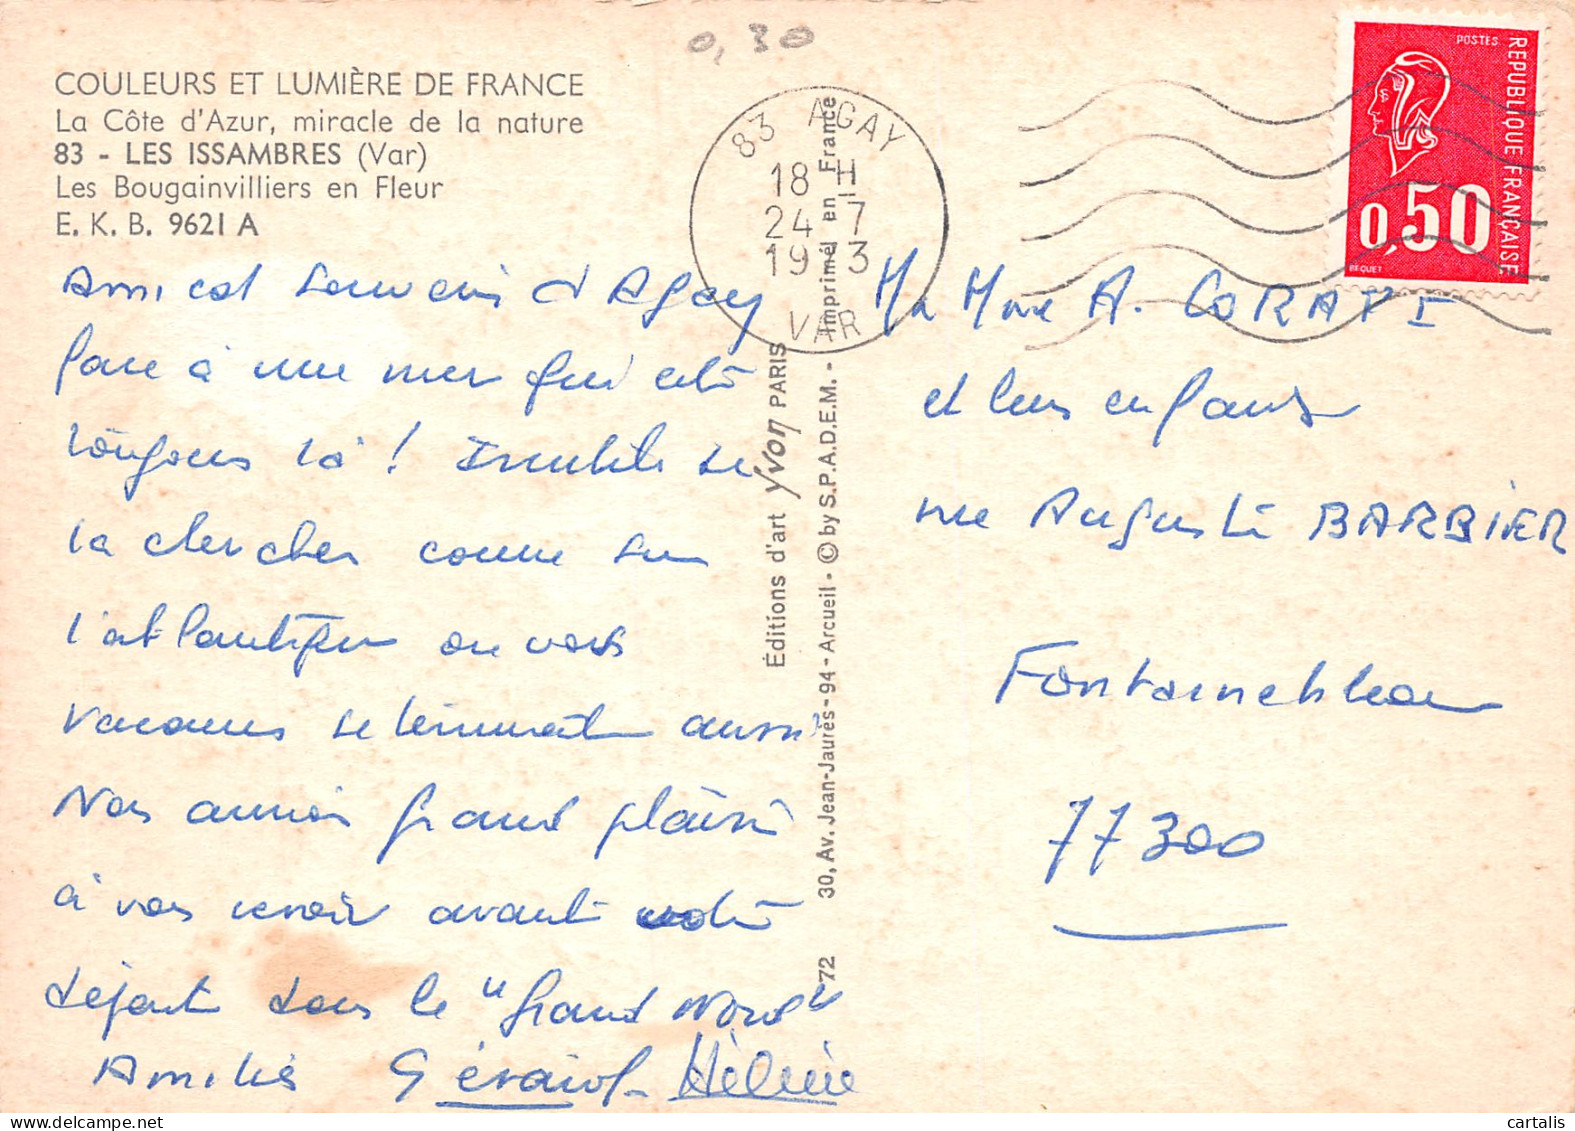 0,30
COULEURS ET LUMIÈRE DE FRANCE
La Côte d'Azur, miracle de la nature
83 - LES ISSAMBRES (Var)
Les Bougainvilliers en Fleur
E. K. B. 9621 A
83 AGAY
18 H
24 - 7
19 3
VAR
POSTES
REPUBLIQUE FRANÇAISE
0,50
BEQUET
Amical Souvenir d'Agay
face à une mer qui est
toujours là ! Inutile de
la chercher comme sur
l'atlantique où vos
vacances se terminent aussi
Nos amies grand plaisir
à vous revoir avant votre
départ dans le "grand Nord"
Amitiés Gérard - Hélène
Éditions d'art Yvon PARIS
72 30, Av. Jean-Jaurès - 94 - Arcueil - © by S.P.A.D.E.M. - Imprimé en France
M Mme A. CORAPI
et leurs enfants
rue Auguste BARBIER
Fontainebleau
77300
cartalis
delcampe.net